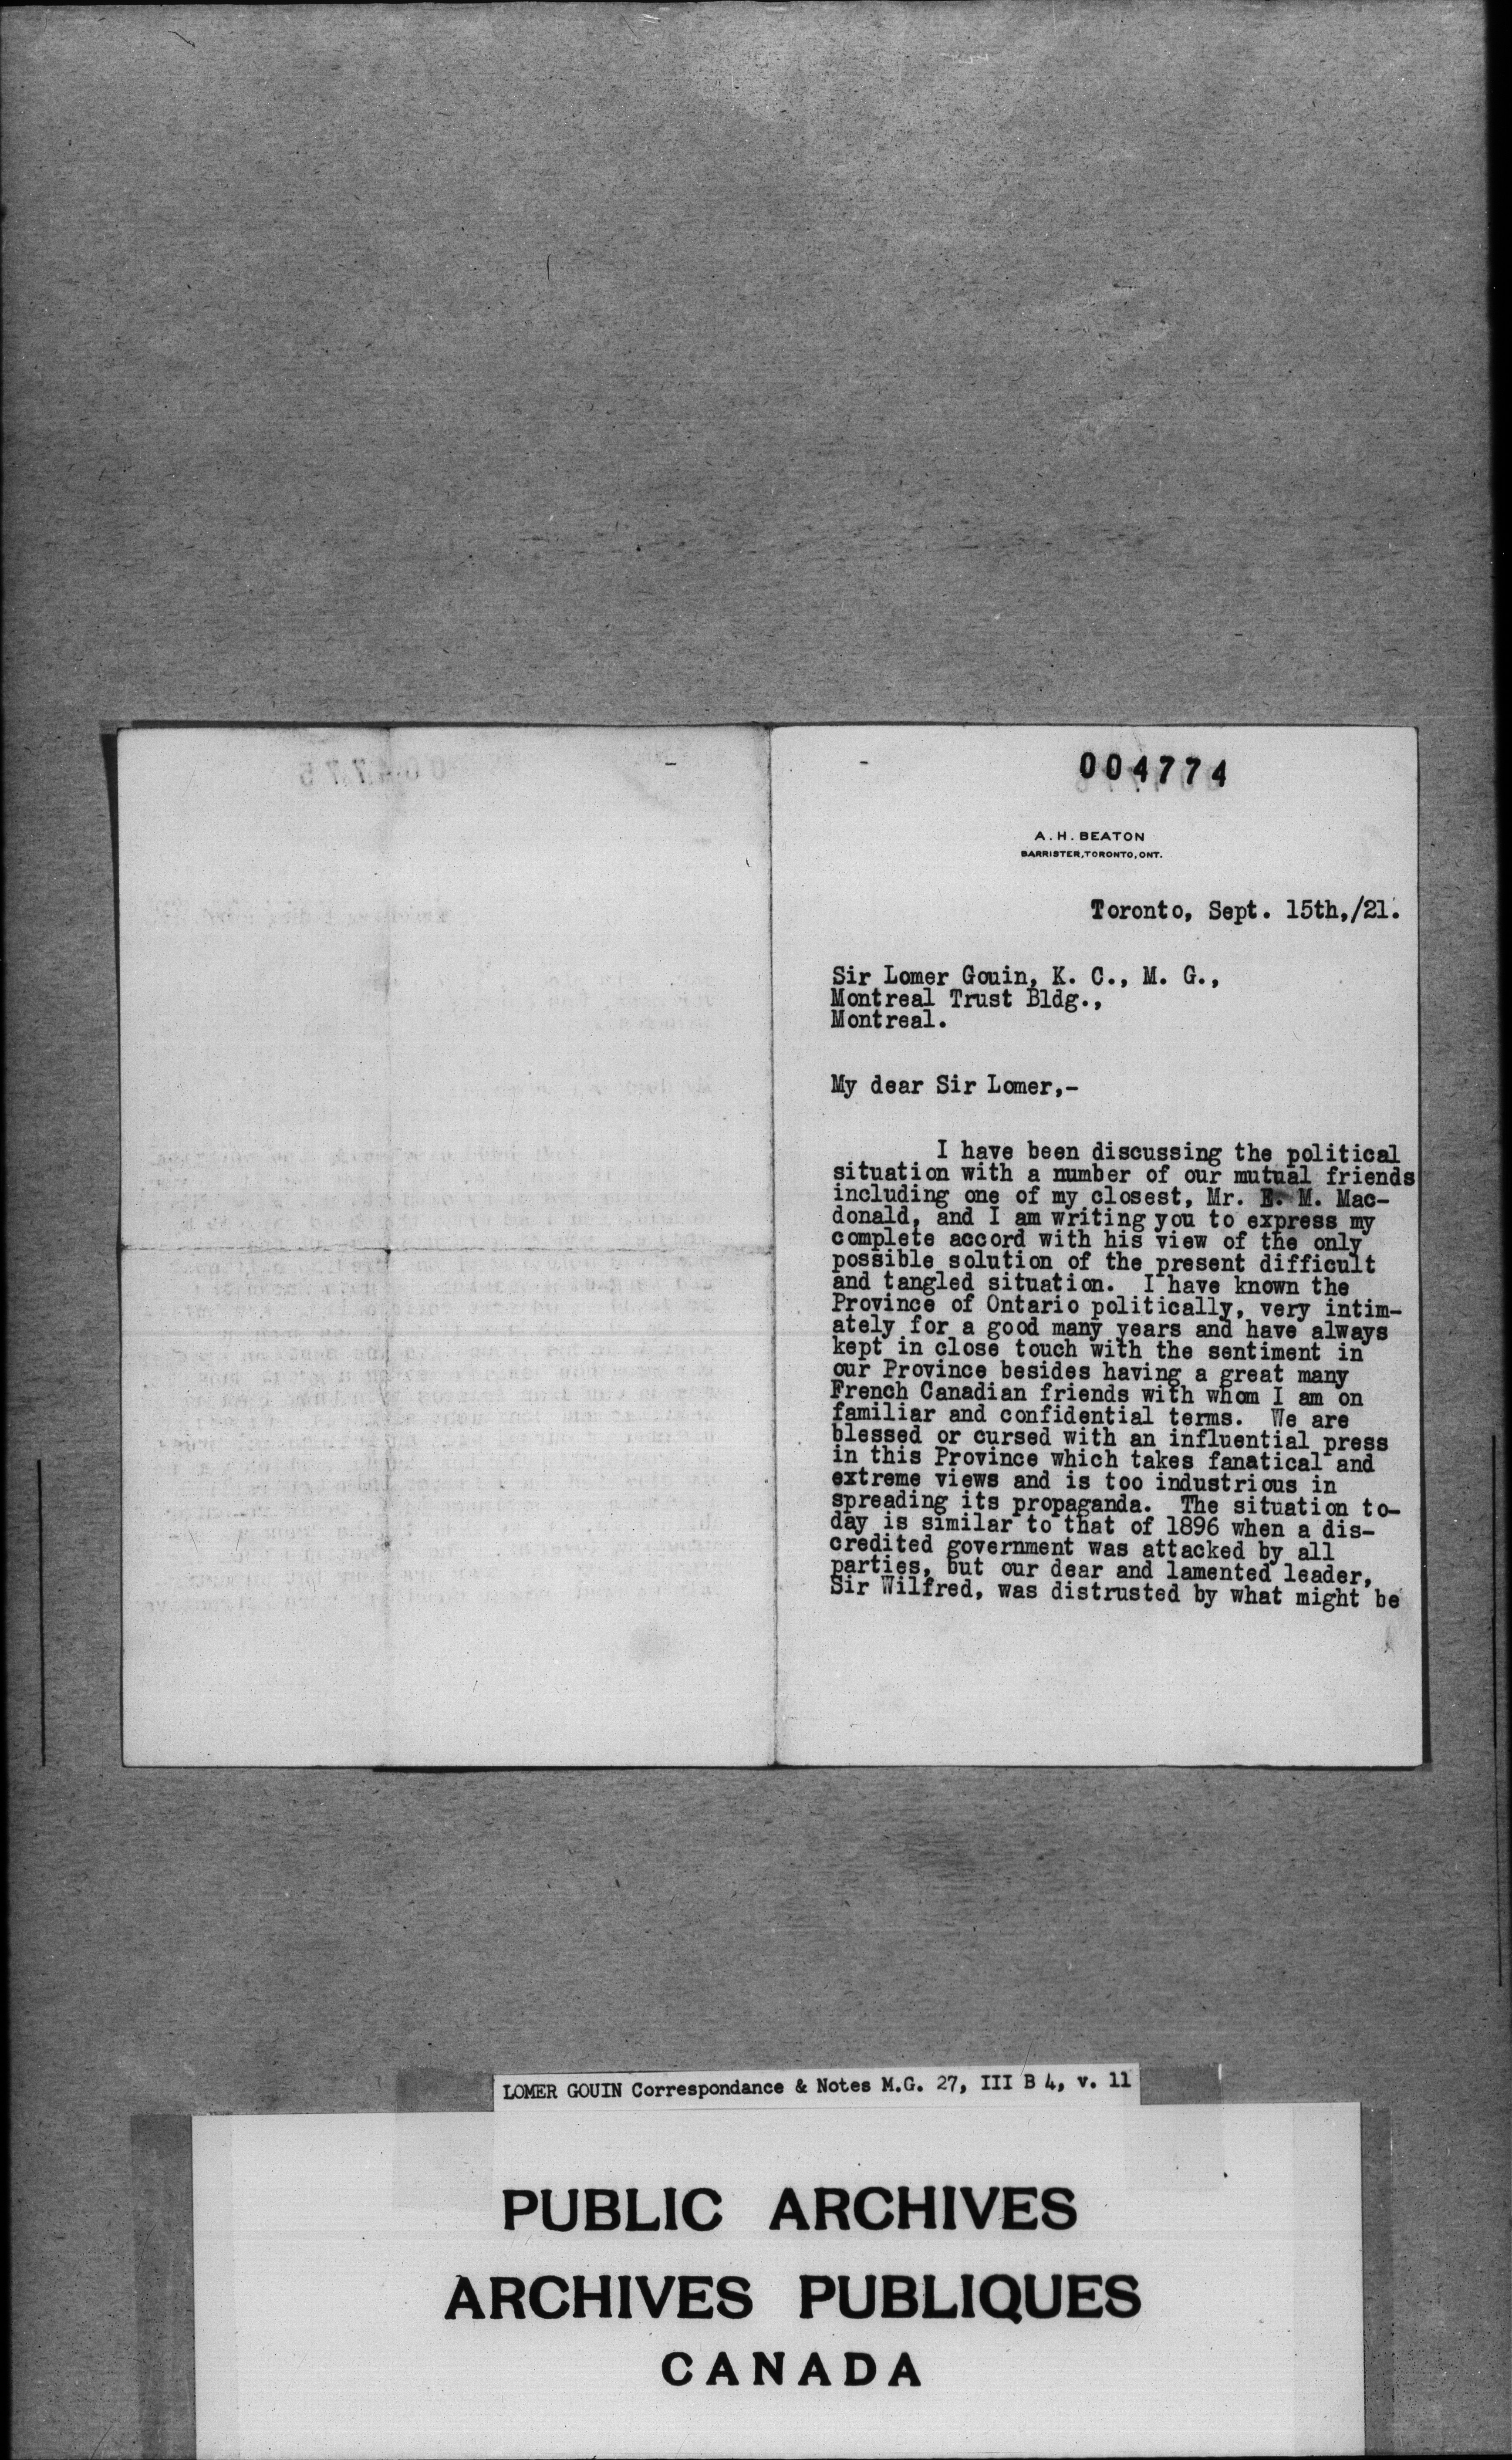 004774
A. H. BEATON
BARRISTER, TORONTO, ONT.
Toronto, Sept. 15th,/21.
Sir Lomer Gouin, K. C., M. G.,
Montreal Trust Bldg.,
Montreal.
My dear Sir Lomer,-
I have been discussing the political
situation with a number of our mutual friends
including one of my closest, Mr. E. M. Mac-
donald, and I am writing you to express my
complete accord with his view of the only
possible solution of the present difficult
and tangled situation. I have known the
Province of Ontario politically, very intim-
ately for a good many years and have always
kept in close touch with the sentiment in
our Province besides having a great many
French Canadian friends with whom I am on
familiar and confidential terms. We are
blessed or cursed with an influential press
in this Province which takes fanatical and
extreme views and is too industrious in
spreading its propaganda. The situation to-
day is similar to that of 1896 when a dis-
credited government was attacked by all
parties, but our dear and lamented leader,
Sir Wilfred, was distrusted by what might be
LOMER GOUIN Correspondance & Notes M.G. 27, III B 4, v. 11
PUBLIC ARCHIVES
ARCHIVES PUBLIQUES
CANADA